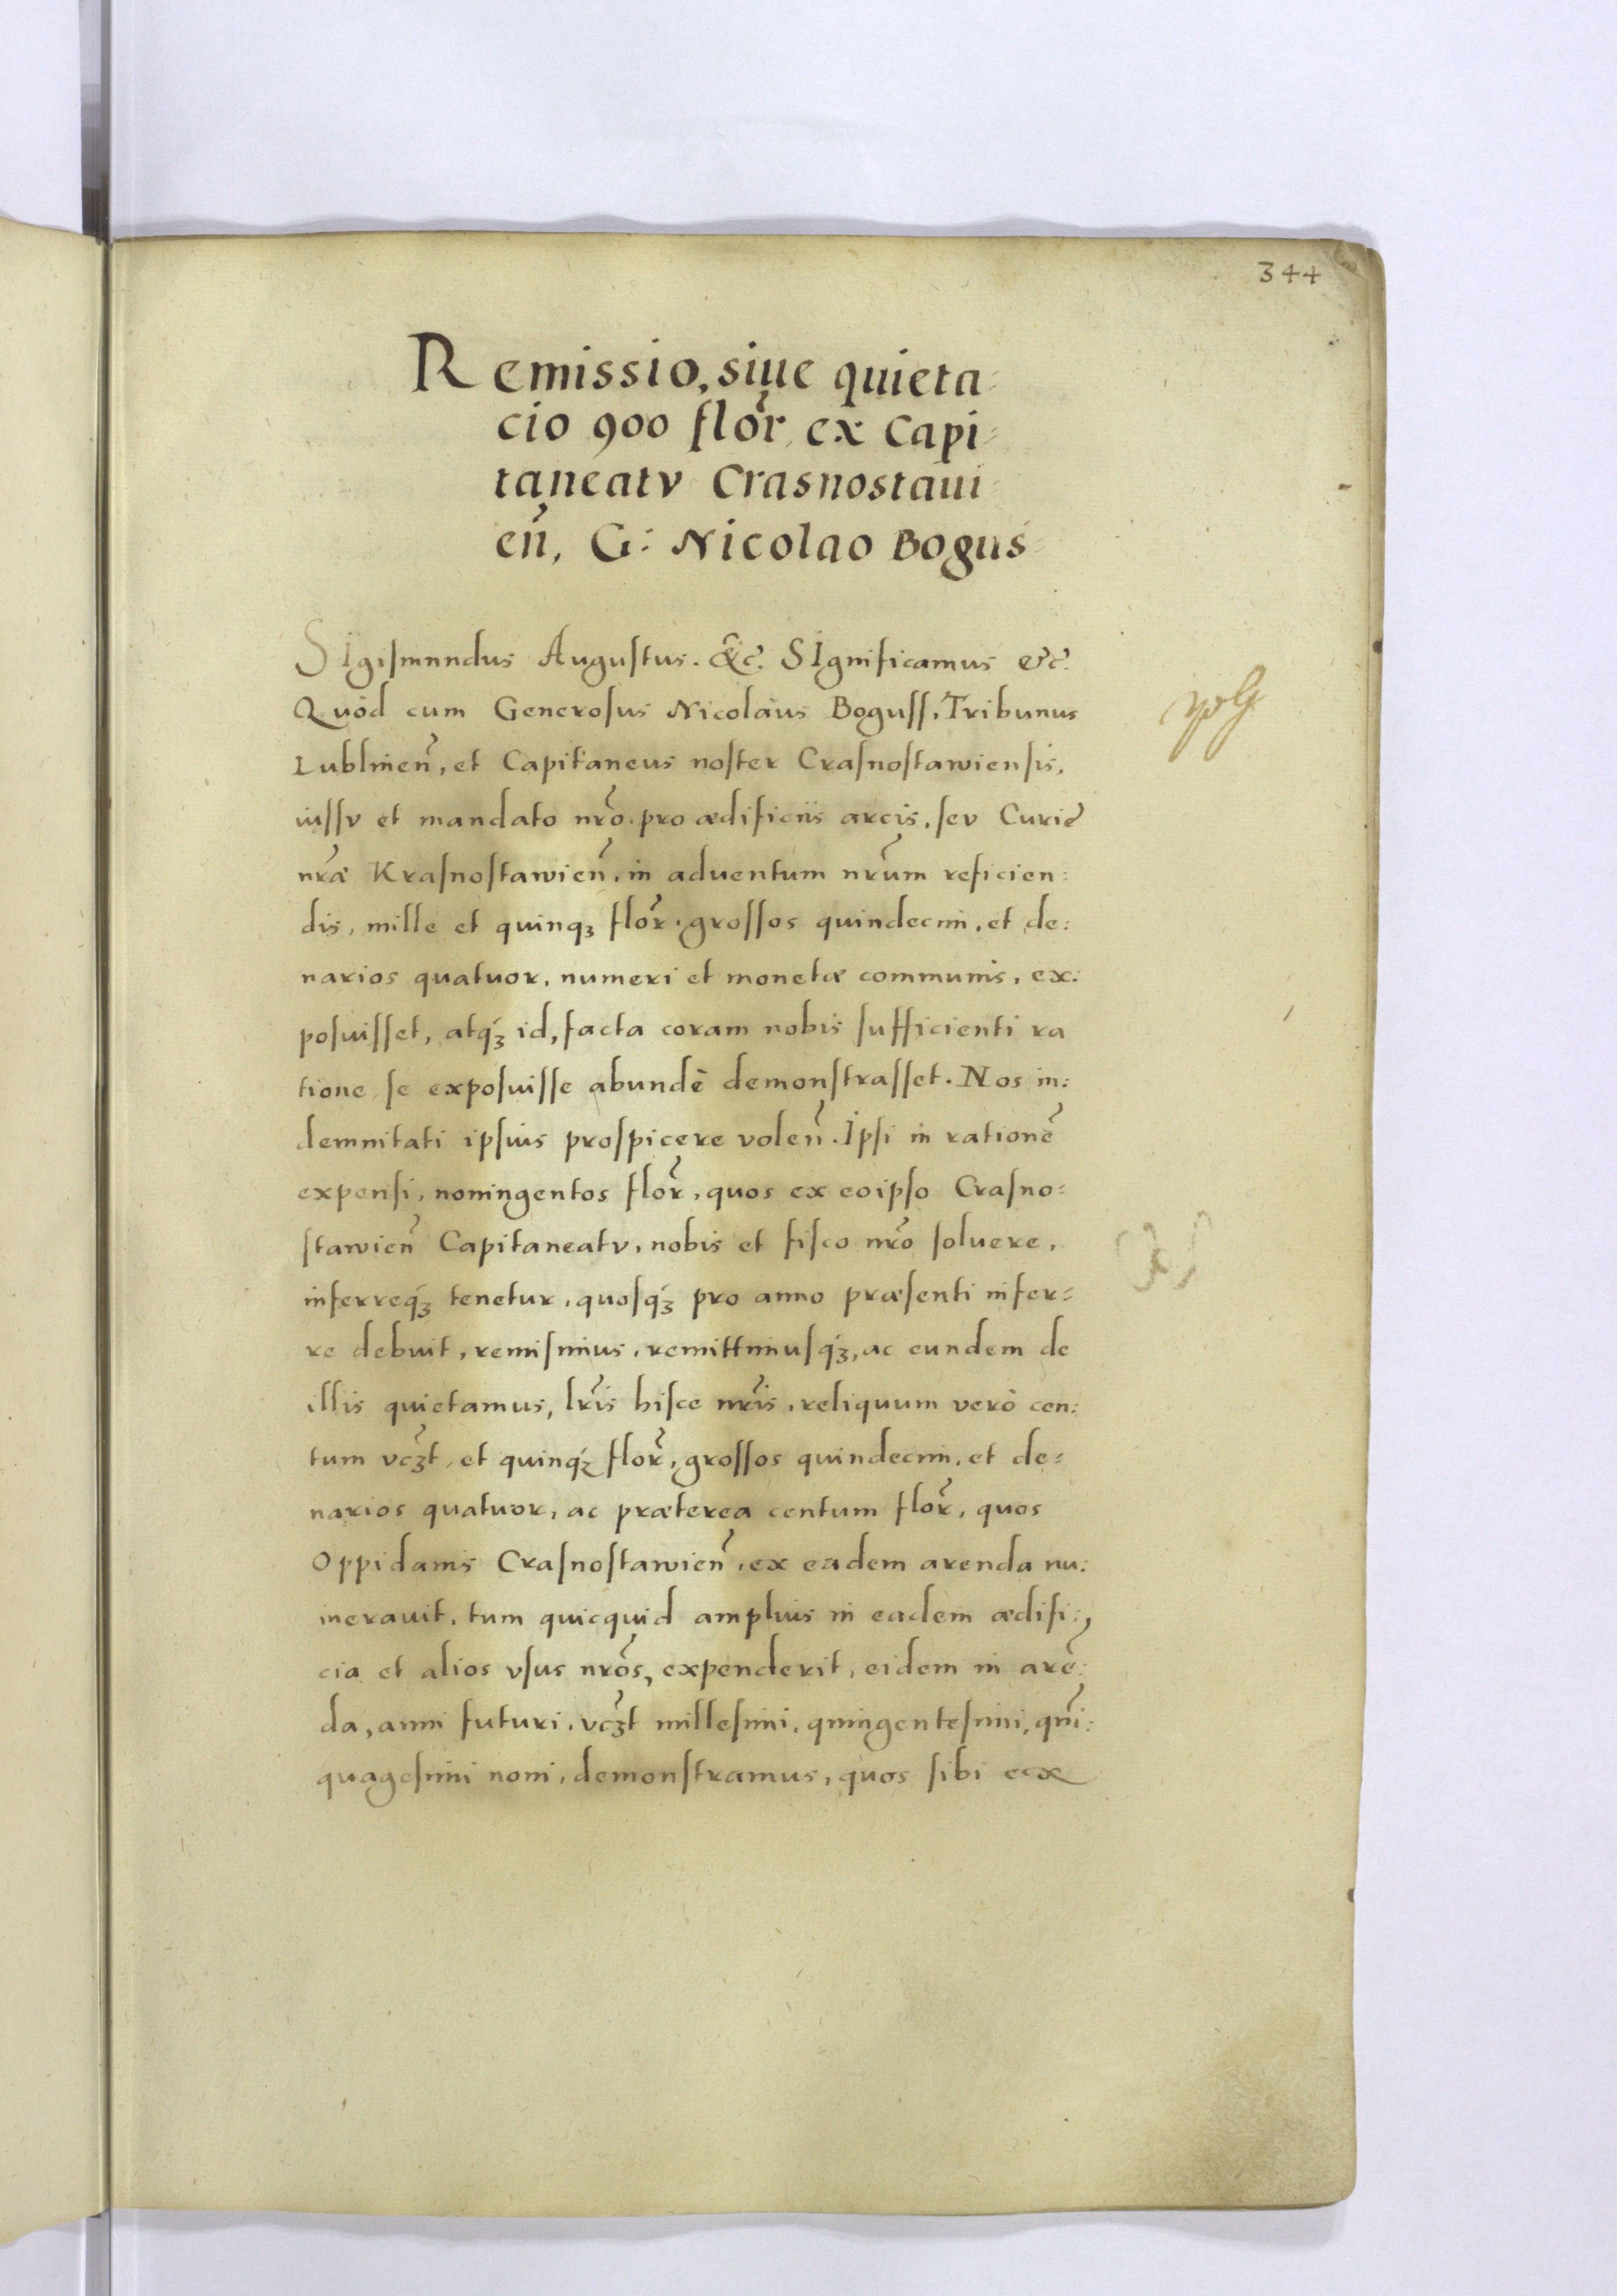 344
Remissio, siue quieta-
cio 900 flor̃ ex Capi-
taneatv Crasnostaui-
eñ, G: Nicolao Bogus
SIgiſmundus Auguſtus. &c̃. SIgnificamus &c̃.
Quòd cum Generoſus Nicolaus Boguſſ, Tribunus
Lublineñ, et Capitaneus noſter Craſnoſtawienſis,
iuſſv et mandato nr̃o. pro ædificiis arcis, ſev Curię
nr̃æ Kraſnoſtawieñ, in aduentum nr̃um reficien:
dis, mille et quinqꝫ flor̃. groſſos quindecim, et de:
narios quatuor, numeri et monetæ communis, ex:
poſuiſſet, atqꝫ́ id, facta coram nobis ſufficienti ra
tione ſe expoſuiſſe abundè demonſtraſſet. Nos in:
demnitati ipſius proſpicere voleñ. Ipſi in rationẽ
expenſi, noningentos flor̃, quos ex eoipſo Craſno:
ſtawieñ Capitaneatv, nobis et fiſco nr̃o ſoluere,
inferreqꝫ́ tenetur, quoſqꝫ́ pro anno præſenti infer-
re debuit, remiſimus, remittimuſqꝫ́, ac eundem de
illis quietamus, lr̃is hiſce nr̃is, reliquum verò cen:
tum vcꝫ̃t, et quinqꝫ́ flor̃, groſſos quindecim, et de-
narios quatuor, ac præterea centum flor̃, quos
Oppidanis Craſnoſtawieñ, ex eadem arenda nu:
merauit, tum quicquid amplius in eadem ædifi:,
cia et alios vſus nr̃os, expenderit, eidem in arẽ:
da, anni futuri, vcꝫ̃t milleſimi, quingenteſimi, quĩ:
quageſimi noni, demonſtramus, quos ſibi eex